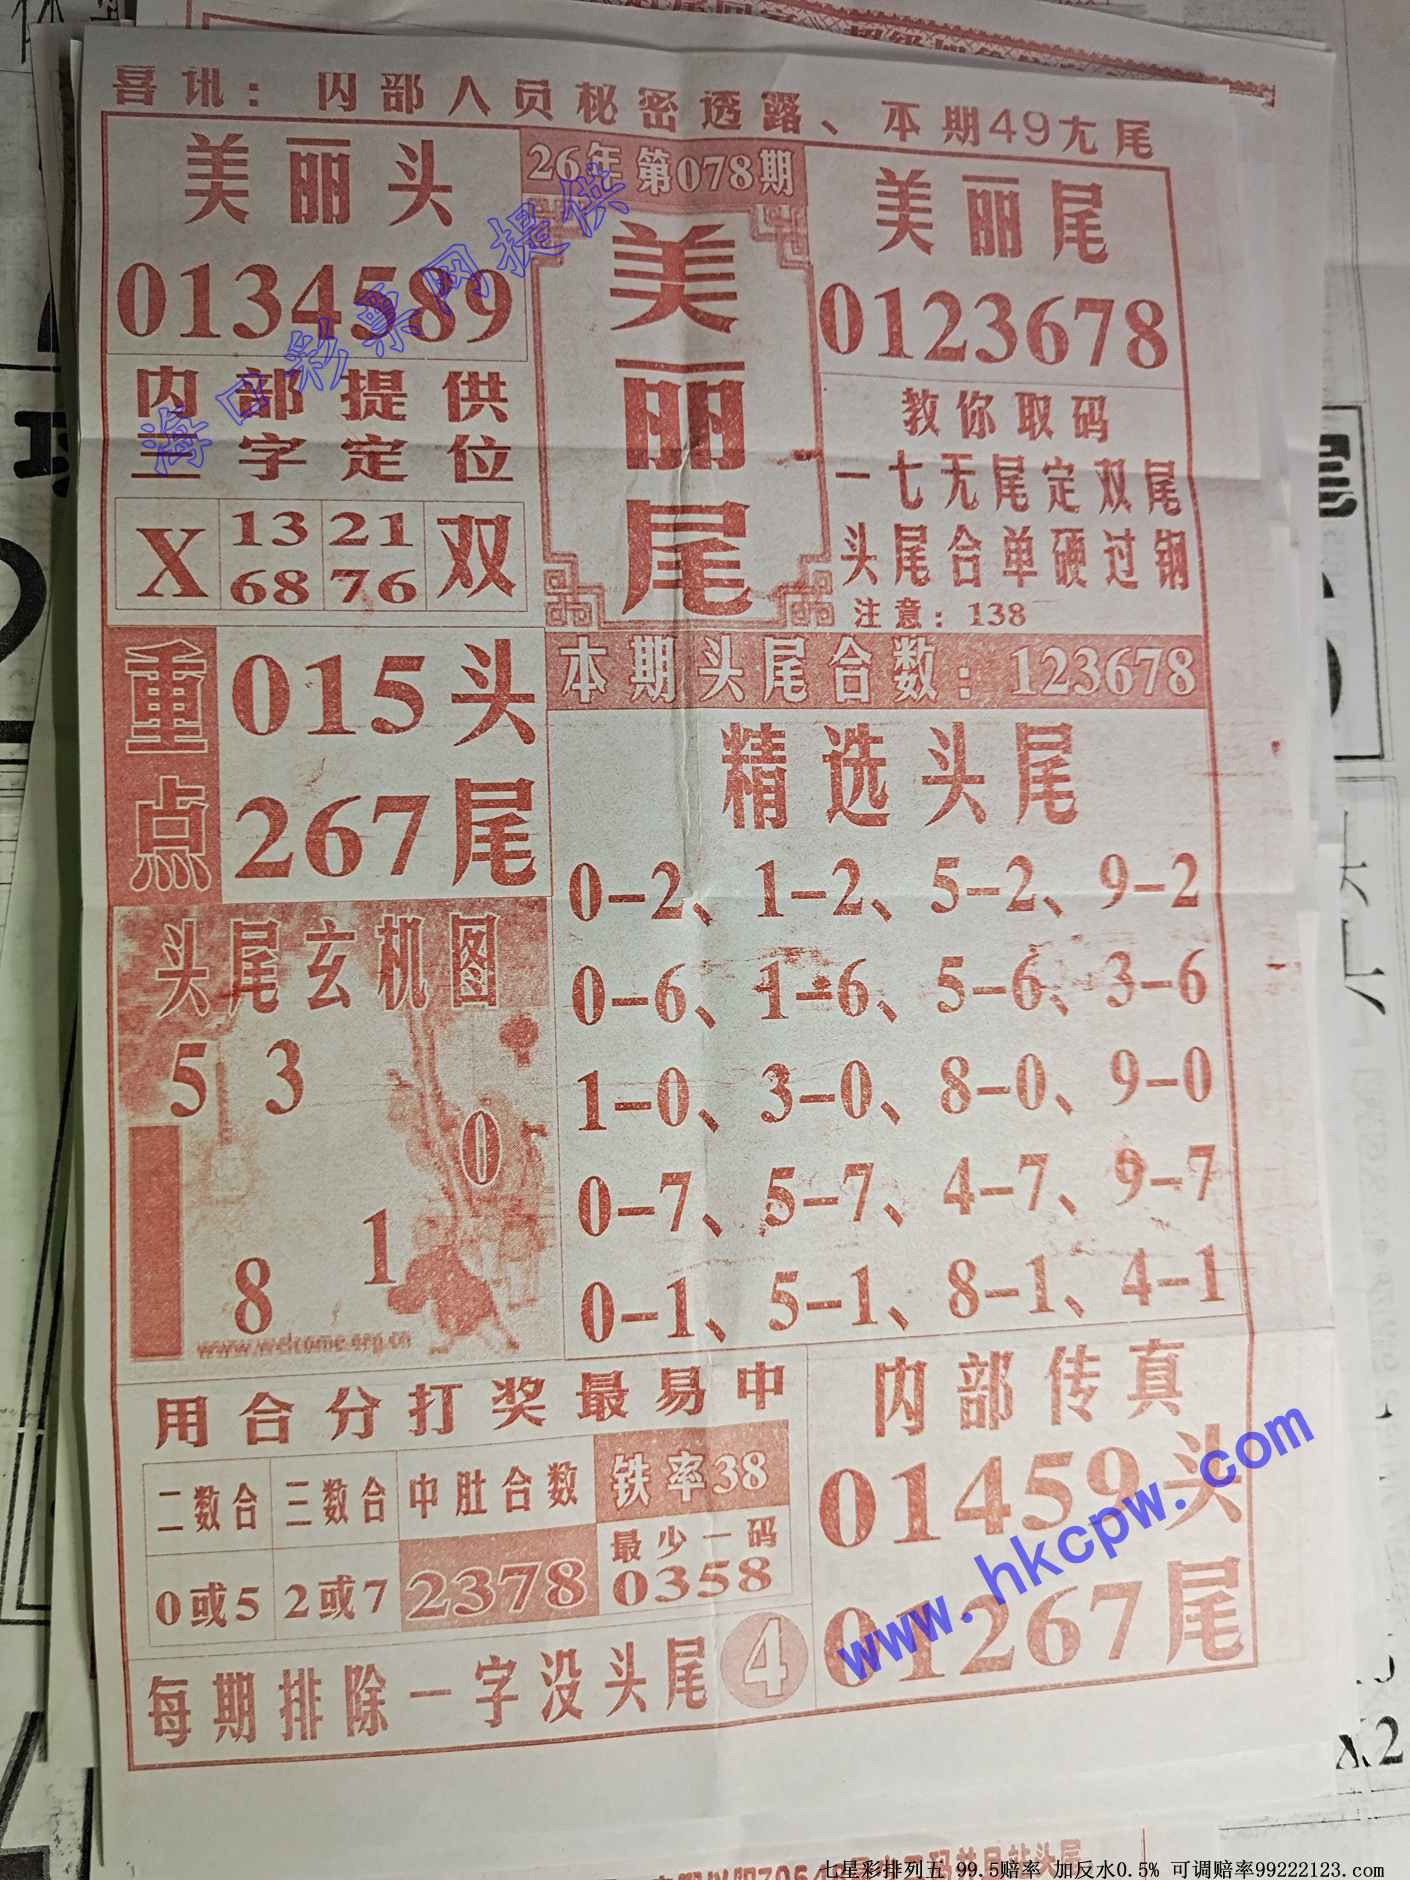 喜讯：内部人员秘密透露、本期49尢尾
美丽头
0134589
内部提供
三字定位
X 13 21 双
68 76
26年第078期
美丽尾
美丽尾
0123678
教你取码
一七无尾定双尾
头尾合单硬过钢
注意：138
重点
015头
267尾
本期头尾合数：123678
精选头尾
0-2、1-2、5-2、9-2
0-6、1-6、5-6、3-6
1-0、3-0、8-0、9-0
0-7、5-7、4-7、9-7
0-1、5-1、8-1、4-1
头尾玄机图
5 3
0
1
8
www.welcome.org.cn
用合分打奖最易中
二数合 三数合 中肚合数 铁率38
0或5 2或7 2378 最少一码
0358
每期排除一字没头尾 4
内部传真
01459头
01267尾
海口彩票网提供
www.hkcpw.com
X2
七星彩排列五 99.5赔率 加反水0.5% 可调赔率99222123.com